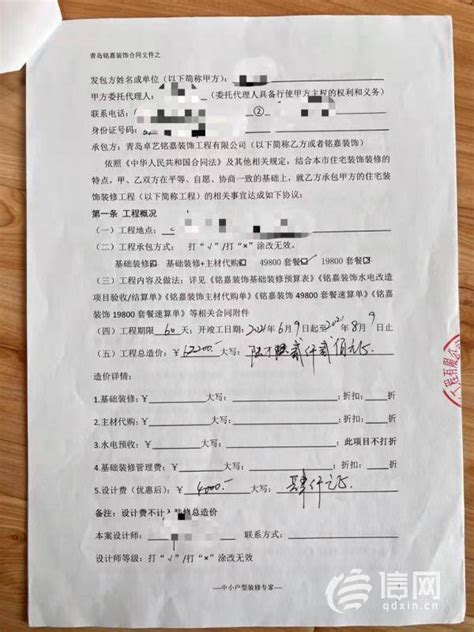 青岛铭嘉装饰合同文件之
发包方姓名或单位（以下简称甲方）：
甲方委托代理人：（委托代理人具备行使甲方主程的权利和义务）
联系电话：②
身份证号码：
承包方：青岛卓艺铭嘉装饰工程有限公司（以下简称乙方或者铭嘉装饰）
依照《中华人民共和国合同法》及其他相关规定，结合本市住宅装饰装修的
特点，甲、乙双方在平等、自愿、协商一致的基础上，就乙方承包甲方的住宅装
饰装修工程（以下简称工程）的相关事宜达成如下协议：
第一条 工程概况
（一）工程地点：
（二）工程承包方式： 打“√”/打“×”涂改无效。
基础装修 基础装修+主材代购 49800 套餐 19800 套餐
（三）工程内容及做法：详见《铭嘉装饰基础装修预算表》《铭嘉装饰水电改造
项目验收/结算单》《铭嘉装饰主材代购单》《铭嘉装饰 49800 套餐速算单》《铭
嘉装饰 19800 套餐速算单》等相关合同附件
（四）工程期限 60 天：开改工日期：2021年6月9日起至2021年8月9日止
（五）工程总造价：￥62200.- 大写：陆万贰仟贰佰元
造价详情：
1.基础装修：￥ 大写： 折扣： 折
2.主材代购：￥ 大写： 折扣： 折
3.水电预收：￥ 大写： 此项目不打折
4.基础装修管理费：￥ 大写： 折扣： 折
5.设计费（优惠后）：￥4000.- 大写：肆仟元
备注：设计费不计入装修总造价
本案设计师： 联系方式：
设计师等级：打“√”/打“×”涂改无效
—中小户型装修专家—
信网
qdxin.cn